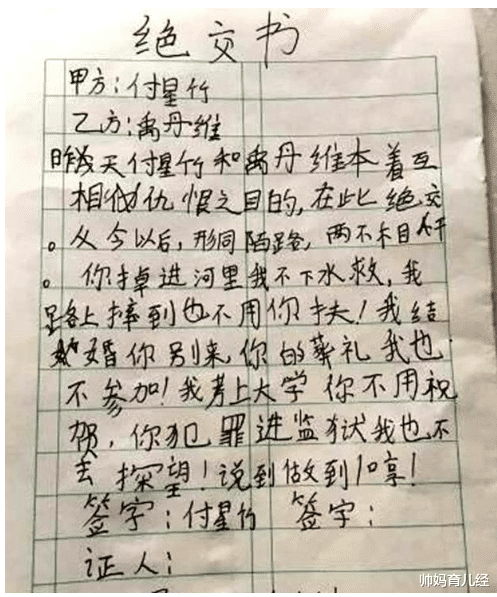 绝交书
甲方:付星竹
乙方:禹丹维
昨天付星竹和禹丹维本着互
相仇恨之目的,在此绝交
。从今以后,形同陌路,两不相干
。你掉进河里我不下水救,我
路上摔到也不用你扶!我结
婚你别来你的葬礼我也
不参加!我考上大学你不用祝
贺,你犯罪进监狱我也不
去探望!说到做到!哼!
签字:付星竹 签字:
证人:
帅妈育儿经